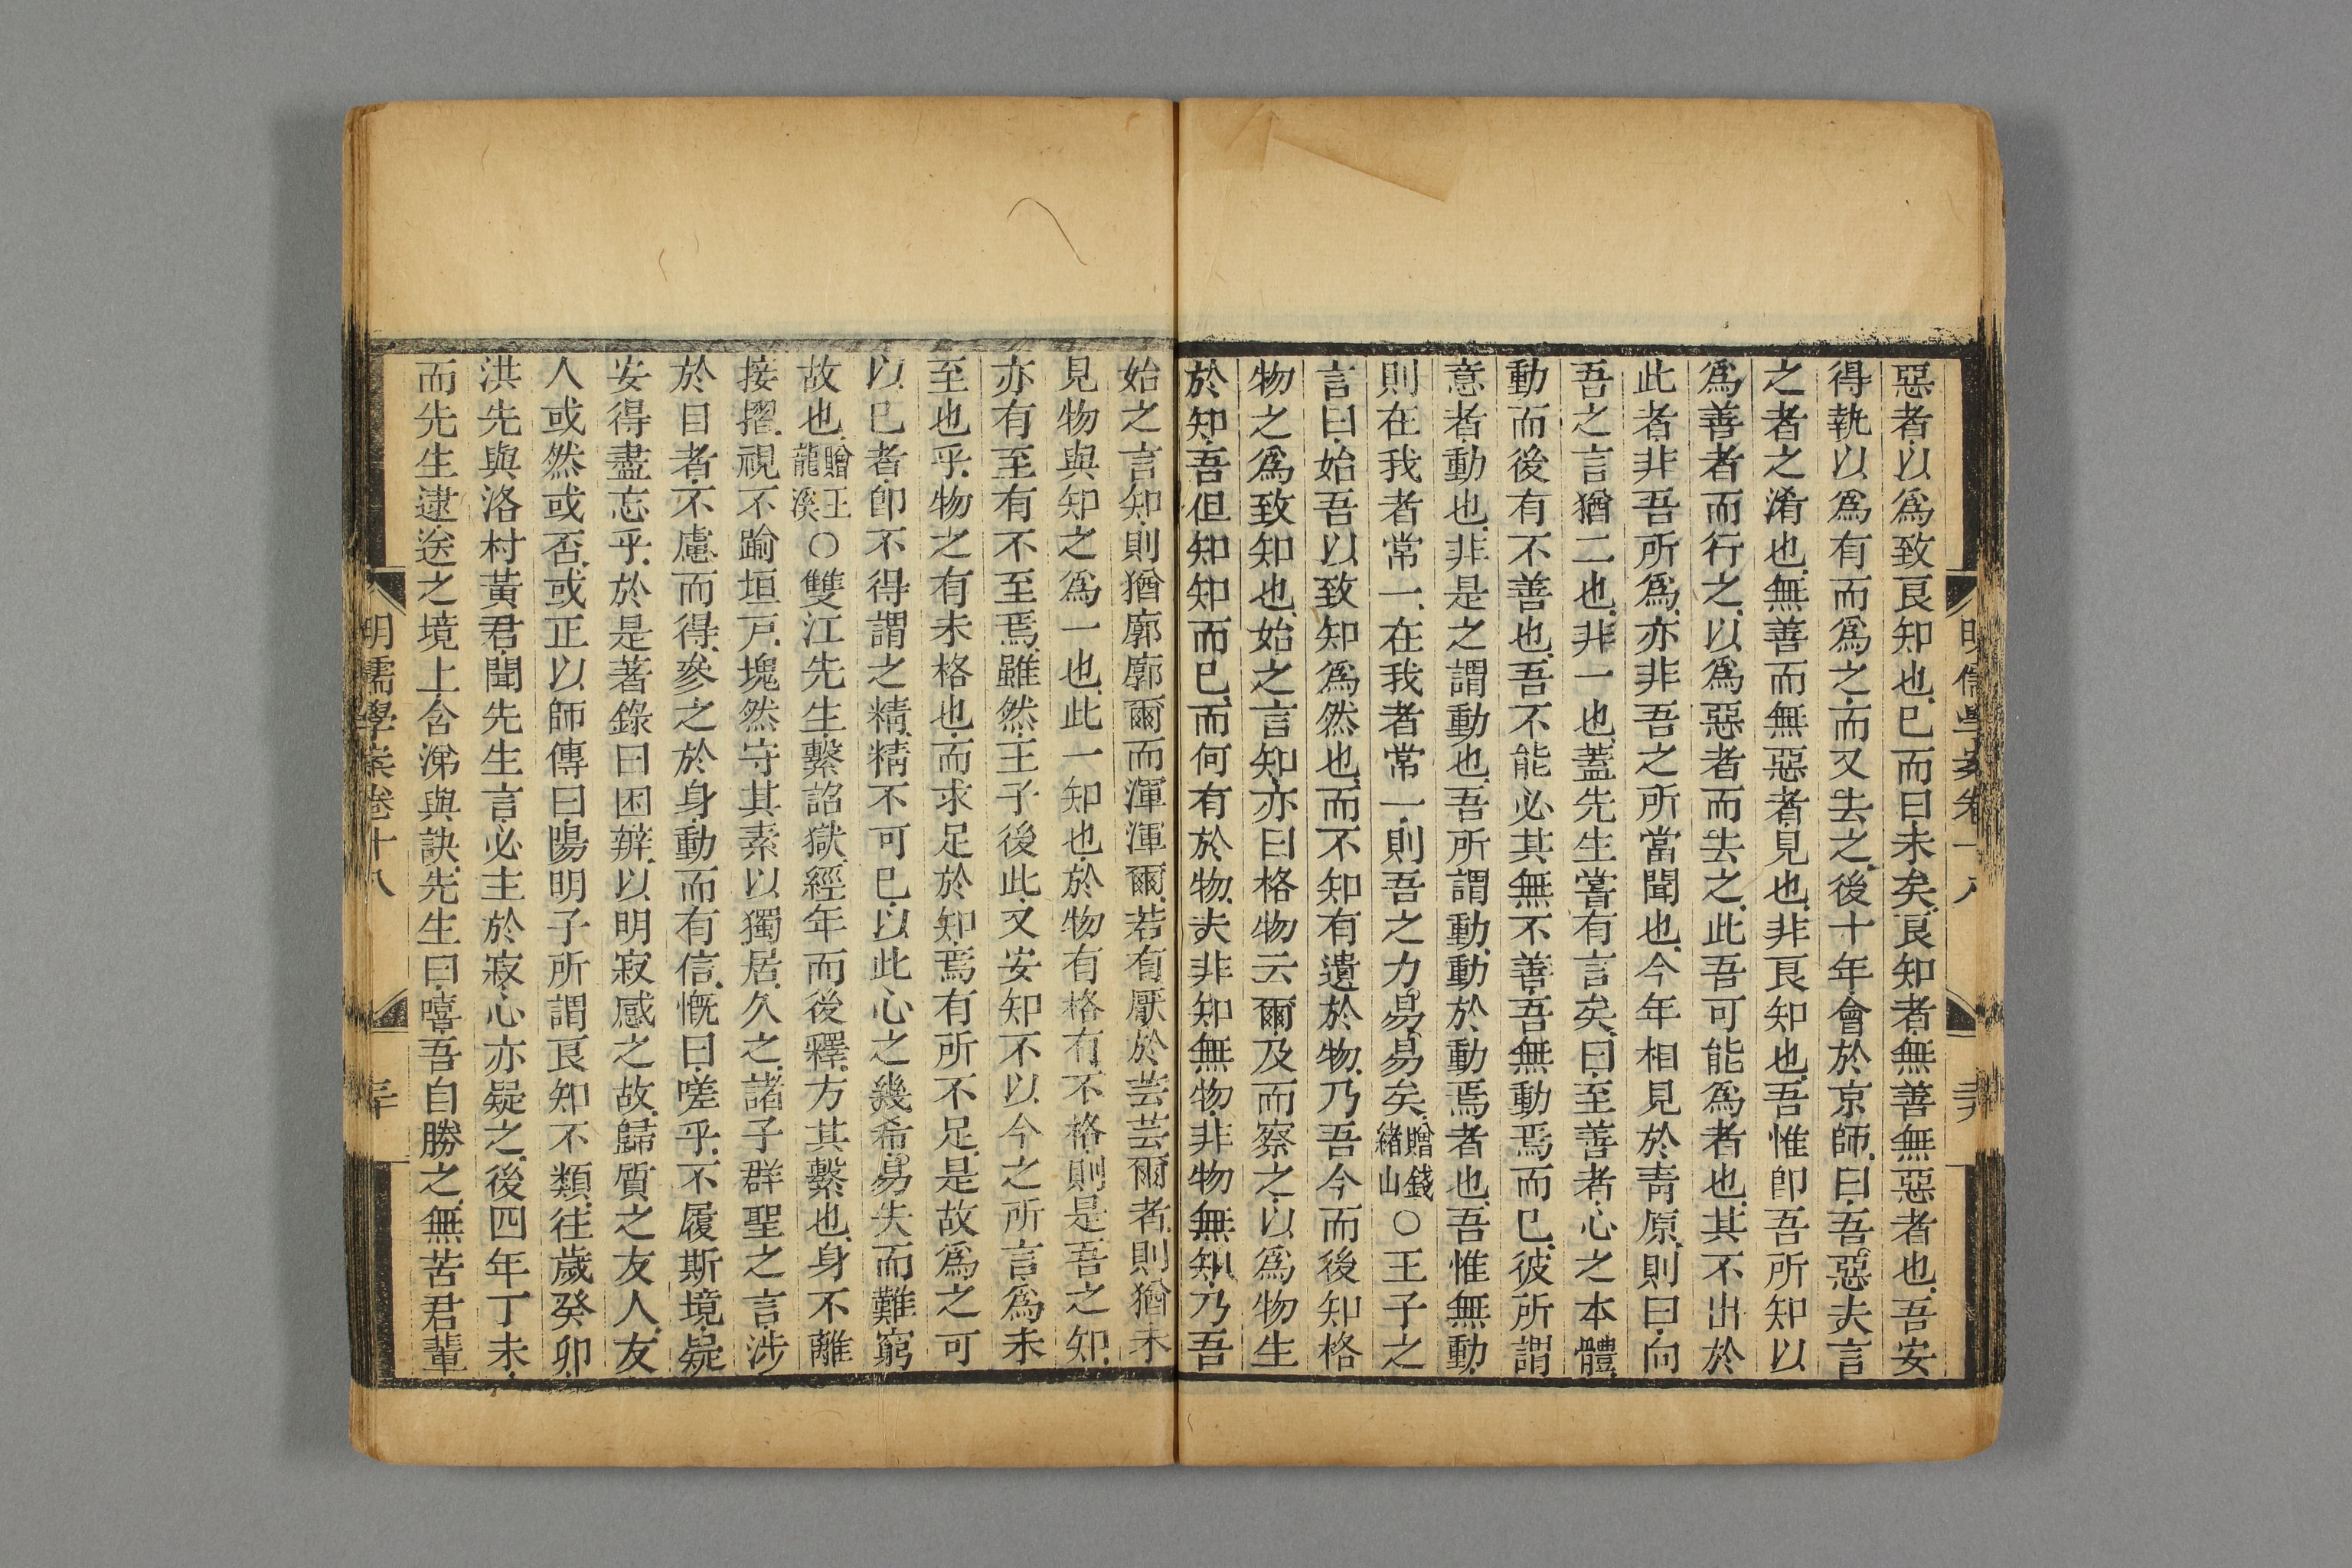 惡者以爲致良知也已而曰未矣良知者無善無惡者也吾安
得執以爲有而爲之而又去之後十年會於京師曰吾惡夫言
之者之淆也無善而無惡者見也非良知也吾惟卽吾所知以
爲善者而行之以爲惡者而去之此吾可能爲者也其不出於
此者非吾所爲亦非吾之所當聞也今年相見於靑原則曰向
吾之言猶二也非一也蓋先生嘗有言矣曰至善者心之本體
動而後有不善也吾不能必其無不善吾無動焉而已彼所謂
意者動也非是之謂動也吾所謂動動於動焉者也吾惟無動
則在我者常一在我者常一則吾之力易易矣贈錢緒山○王子之
言曰始吾以致知爲然也而不知有遺於物乃吾今而後知格
物之爲致知也始之言知亦曰格物云爾及而察之以爲物生
於知吾但知知而已而何有於物夫非知無物非物無知乃吾
始之言知則猶廓廓爾而渾渾爾若有厭於芸芸爾者則猶未
見物與知之爲一也此一知也於物有格有不格則是吾之知
亦有至有不至焉雖然王子後此又安知不以今之所言爲未
至也乎物之有未格也而求足於知焉有所不足是故爲之可
以已者卽不得謂之精精不可已以此心之幾希易失而難窮
故也贈王龍溪○雙江先生繫詔獄經年而後釋方其繫也身不離
接摺視不踰垣戶塊然守其素以獨居久之諸子群聖之言涉
於目者不慮而得參之於身動而有信慨曰嗟乎不履斯境疑
安得盡忘乎於是著錄曰困辨以明寂感之故歸質之友人友
人或然或否或正以師傳曰陽明子所謂良知不類往歲癸卯
洪先與洛村黃君聞先生言必主於寂心亦疑之後四年丁未
而先生逮送之境上含涕與訣先生曰嘻吾自勝之無苦君輩
明儒學案卷十八